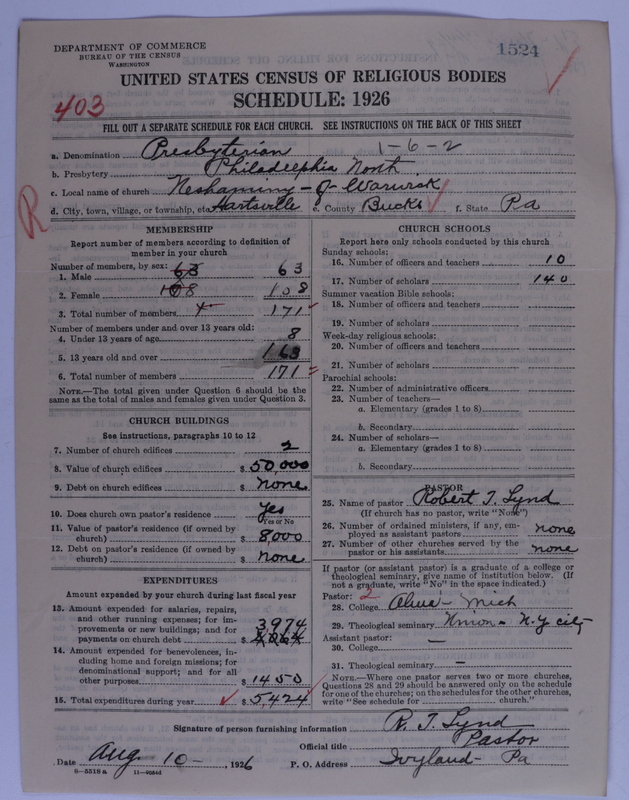 DEPARTMENT OF COMMERCE
BUREAU OF THE CENSUS
WASHINGTON
1524
UNITED STATES CENSUS OF RELIGIOUS BODIES
SCHEDULE: 1926
403
FILL OUT A SEPARATE SCHEDULE FOR EACH CHURCH. SEE INSTRUCTIONS ON THE BACK OF THIS SHEET
1-6-2
a. Denomination Presbyterian
b. Presbytery Philadelphia North
c. Local name of church Neshaminy - of - Warwick
d. City, town, village, or township, etc. Hartsville e. County Bucks f. State Pa
R
MEMBERSHIP
Report number of members according to definition of
member in your church
Number of members, by sex: 63
1. Male 63
2. Female 108 108
3. Total number of members 171
Number of members under and over 13 years old:
4. Under 13 years of age 8
5. 13 years old and over 163
6. Total number of members 171
NOTE.—The total given under Question 6 should be the
same as the total of males and females given under Question 3.
CHURCH BUILDINGS
See instructions, paragraphs 10 to 12
7. Number of church edifices 2
8. Value of church edifices $ 50,000
9. Debt on church edifices $ none
10. Does church own pastor's residence Yes
Yes or No
11. Value of pastor's residence (if owned by
church) $ 8,000
12. Debt on pastor's residence (if owned by
church) $ none
EXPENDITURES
Amount expended by your church during last fiscal year
13. Amount expended for salaries, repairs,
and other running expenses; for im-
provements or new buildings; and for 3974
payments on church debt $
14. Amount expended for benevolences, in-
cluding home and foreign missions; for
denominational support; and for all
other purposes $ 1450
15. Total expenditures during year $ 5,424
CHURCH SCHOOLS
Report here only schools conducted by this church
Sunday schools:
16. Number of officers and teachers 10
17. Number of scholars 140
Summer vacation Bible schools:
18. Number of officers and teachers
19. Number of scholars
Week-day religious schools:
20. Number of officers and teachers
21. Number of scholars
Parochial schools:
22. Number of administrative officers
23. Number of teachers—
a. Elementary (grades 1 to 8)
b. Secondary
24. Number of scholars—
a. Elementary (grades 1 to 8)
b. Secondary
PASTOR
25. Name of pastor Robert T. Lynd
(If church has no pastor, write "None")
26. Number of ordained ministers, if any, em-
ployed as assistant pastors none
27. Number of other churches served by the
pastor or his assistants none
If pastor (or assistant pastor) is a graduate of a college or
theological seminary, give name of institution below. (If
not a graduate, write "No" in the space indicated.)
Pastor: 2
28. College Alma - Mich
29. Theological seminary Union - N.Y city
Assistant pastor:
30. College —
31. Theological seminary —
NOTE.—Where one pastor serves two or more churches,
Questions 28 and 29 should be answered only on the schedule
for one of the churches; on the schedules for the other churches,
write "See schedule for church."
Signature of person furnishing information R. T. Lynd
Official title Pastor
Date Aug. 10 -, 1926 P. O. Address Ivyland - Pa
8—5518a